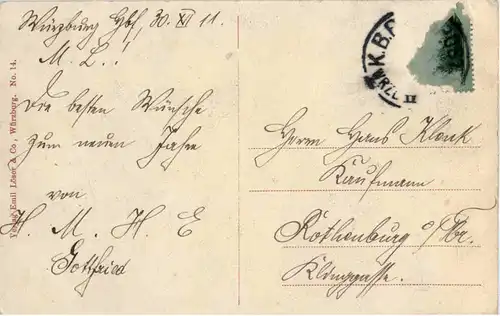 Würzburg Hbf, 30. XI 11.
M. L.!
Die besten Wünsche
zum neuen Jahre
von
H. M. H. E
Gottfried
Verlag Emil Löser & Co., Würzburg. No. 14.
K.B.P.
II
Herrn Hans Klenk
Kaufmann
Rothenburg o/Tbr.
Klinggasse.